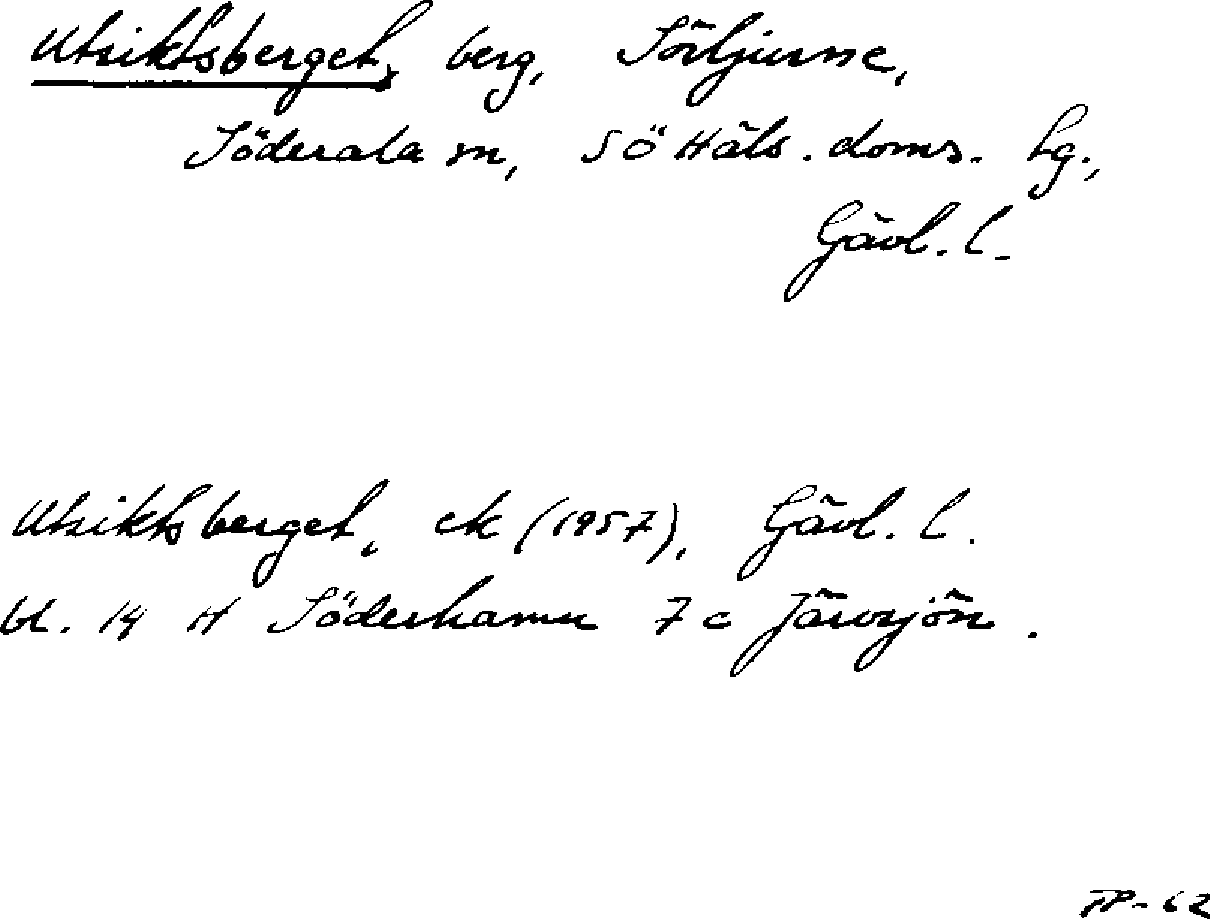 Utsiktsberget, berg, Sörljusne,
Söderala sn, SÖ Häls. doms. hg.,
Gävl. l.
Utsiktsberget, ek (1957), Gävl. l.
bl. 14 H Söderhamn 7 c Järvsjön.
-62